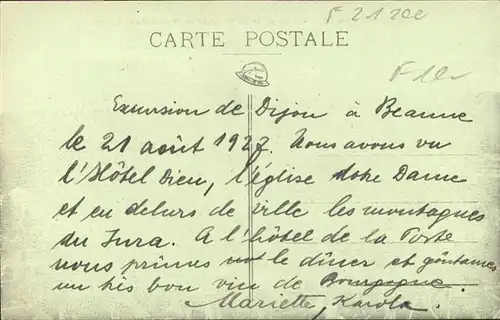 F 2120c
CARTE POSTALE
F 10-
Excursion de Dijon à Beaune
le 21 août 1927. Nous avons vu
l'Hôtel Dieu, l'église Notre Dame
et en dehors de ville les montagnes
du Jura. A l'hôtel de la Poste
nous primes le dîner et goûtames
un très bon vin de Bourgogne.
Mariette, Karola.